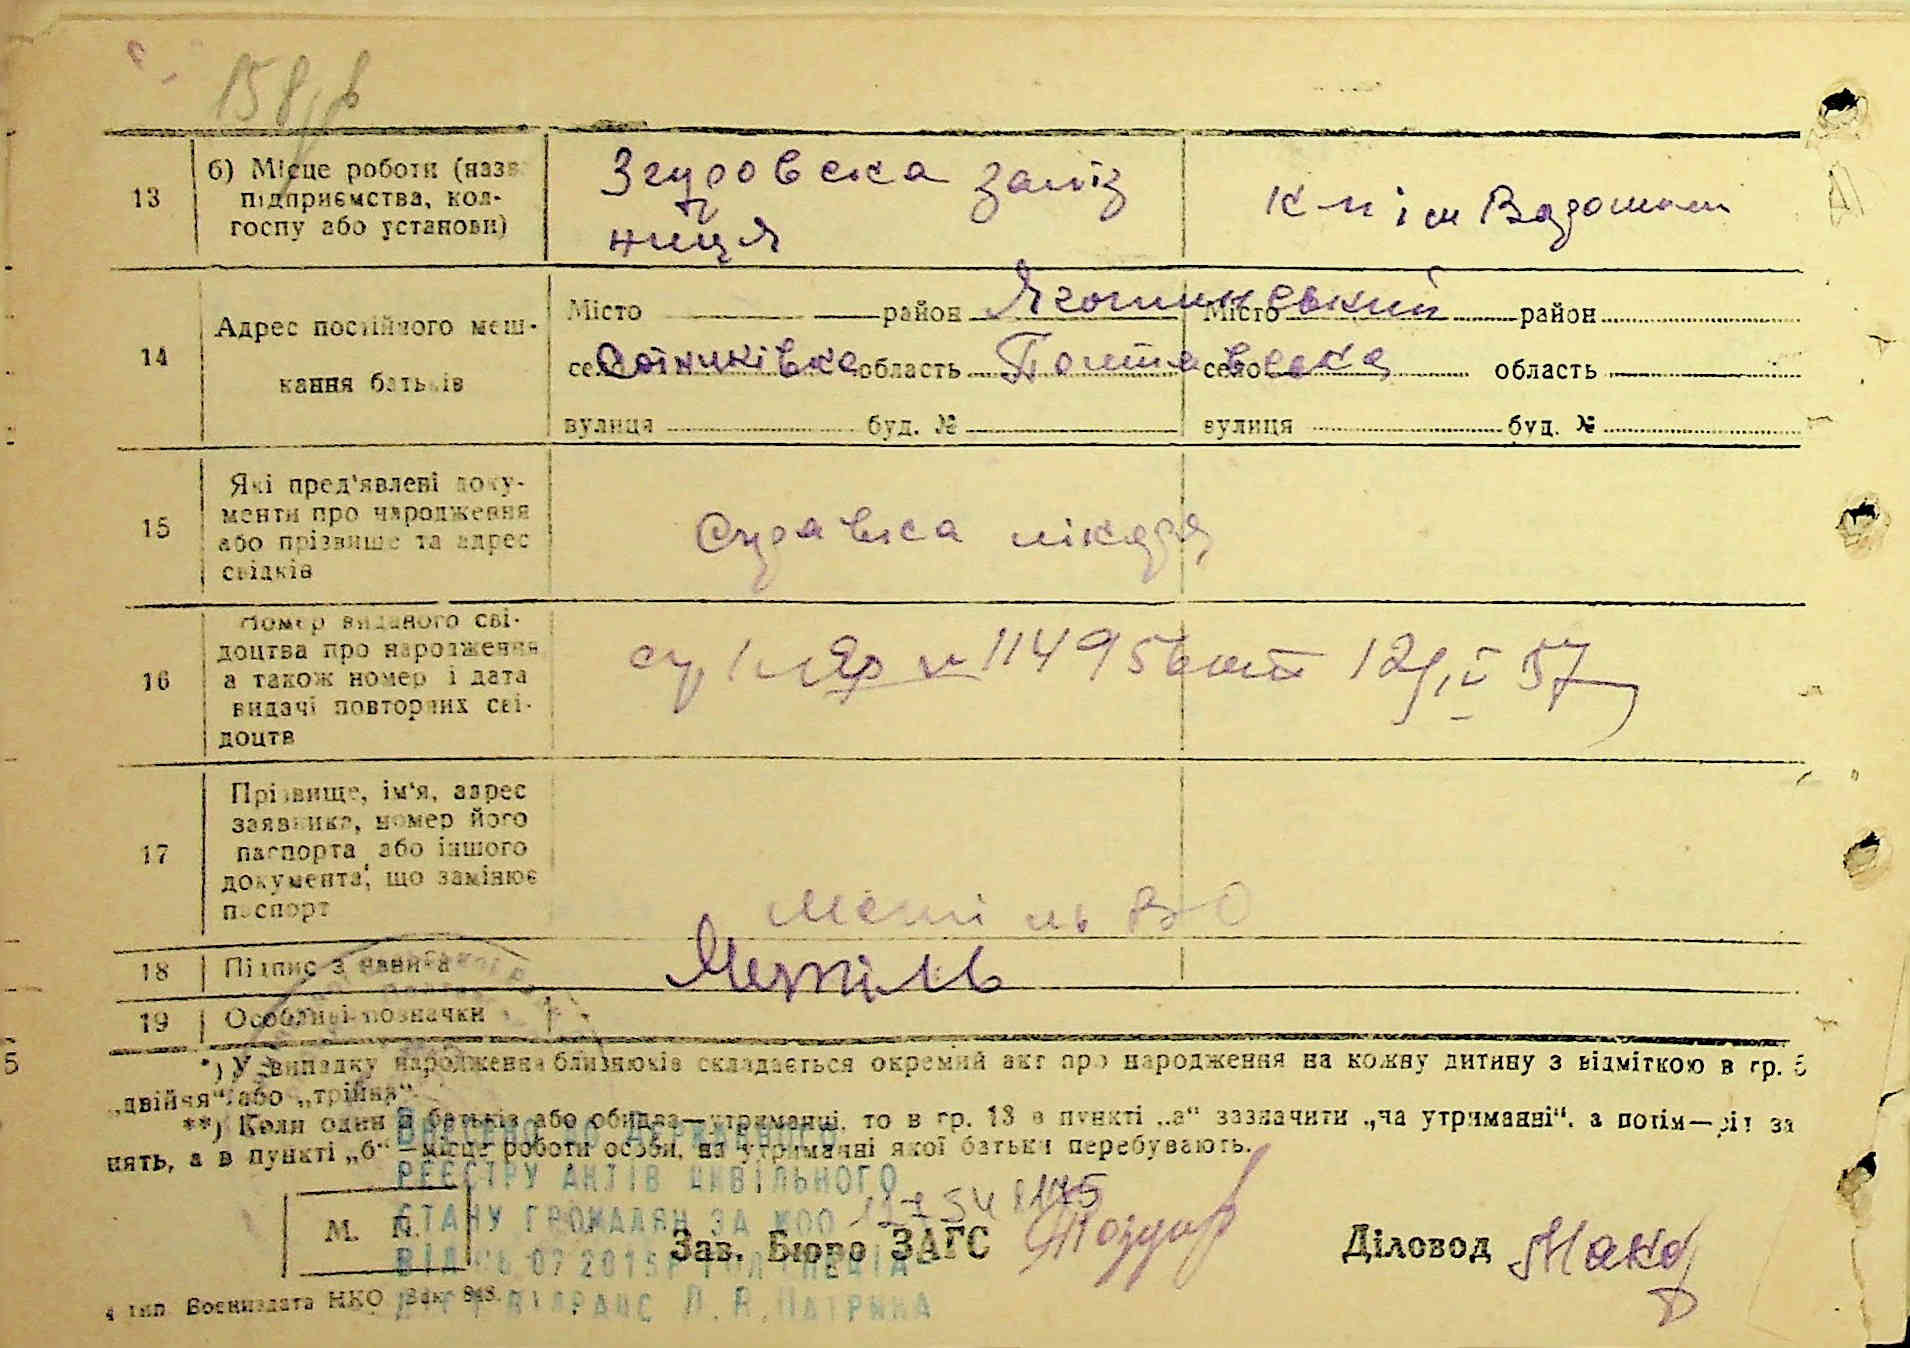 158
13
б) Місце роботи (назв
підприємства, кол-
госпу або установи)
Згуровска заліз
ниця
к-п ім
14
Адрес постійного меш-
кання батьків
Місто район Яготинський Місто район
село Сотниківка область Полтавська село область
вулиця буд. № вулиця буд. №
15
Які пред'явлені доку-
менти про народження
або прізвище та адрес
свідків
Справка лікаря
16
Номер виданого сві-
доцтва про народження
а також номер і дата
видачі повторних сві-
доцтв
№ 114956 от 12/V 57
17
Прізвище, ім'я, адрес
заявника, номер його
паспорта або іншого
документа, що замінює
паспорт
Метіль
18
Підпис заявника
Метіль
19
Особливі позначки
*) У випадку народження близнюків складається окремий акт про народження на кожну дитину з відміткою в гр. 5
„двійня" або „трійня".
**) Коли один з батьків або обидва—утриманці, то в гр. 13 в пункті „а" зазначити „на утриманні", а потім—рід за
нять, а в пункті „б"—місце роботи особи, на утриманні якої батьки перебувають.
ВНЕСЕНО ДО ДЕРЖАВНОГО
РЕЄСТРУ АКТІВ ЦИВІЛЬНОГО
СТАНУ ГРОМАДЯН ЗА №00
М. П.
Зав. Бюро ЗАГС
Діловод
4 тип. Воениздата НКО Зак. 848.